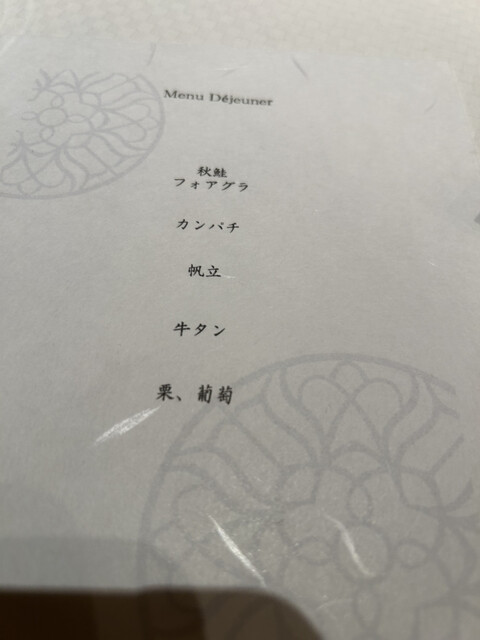 Menu Déjeuner
秋鮭
フォアグラ
カンパチ
帆立
牛タン
栗、葡萄